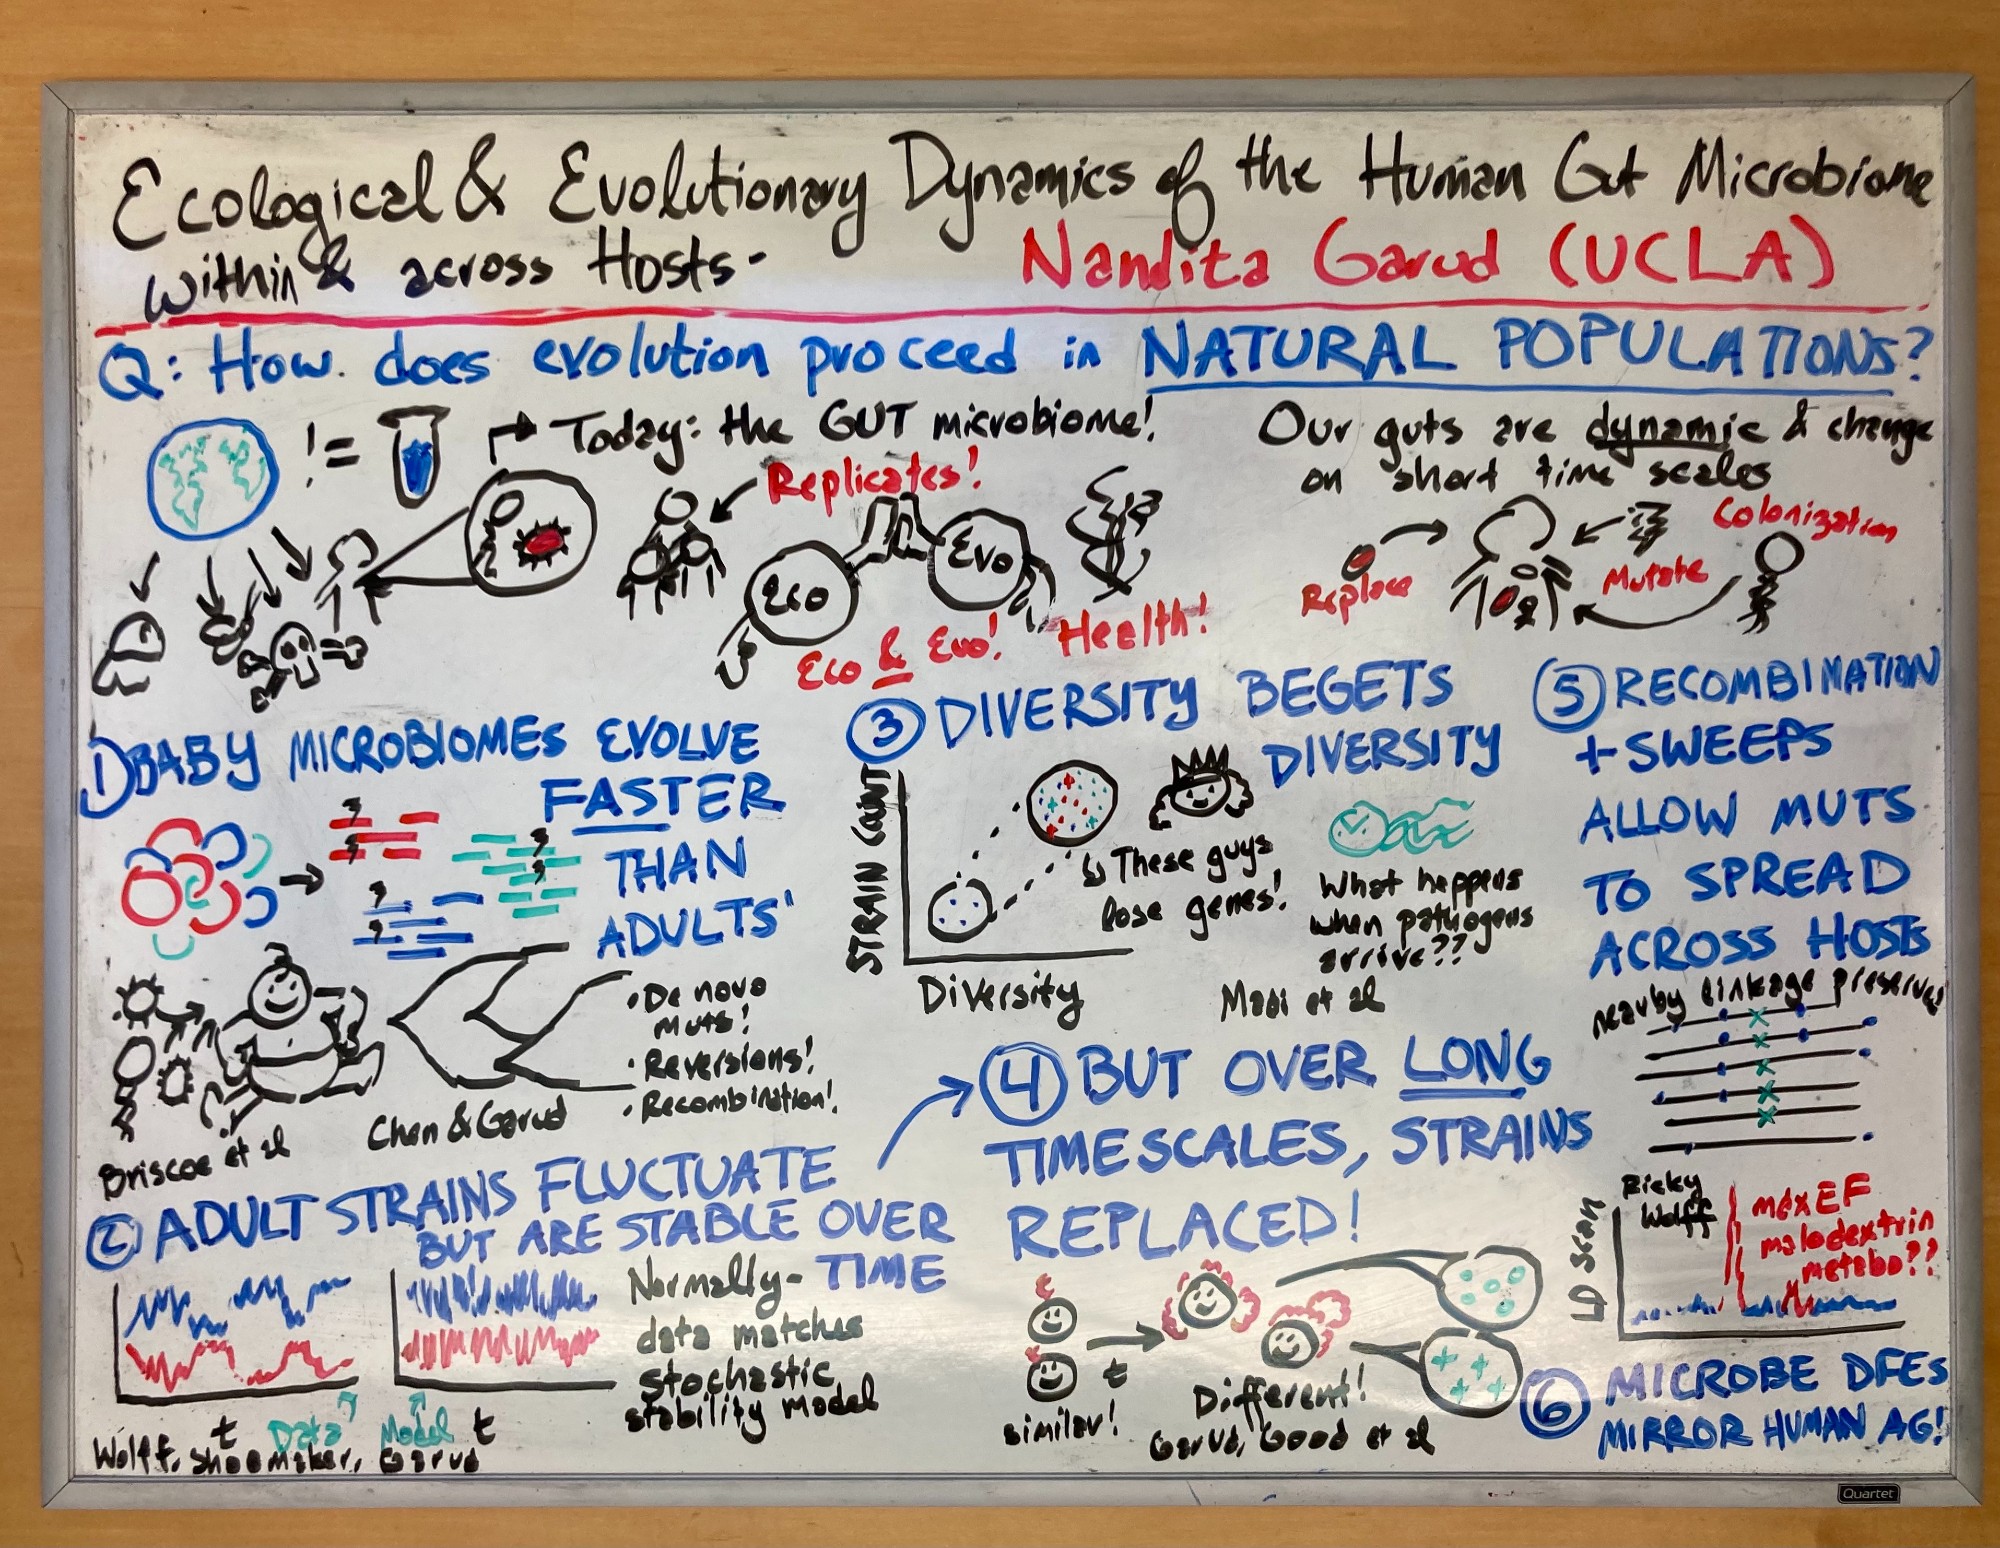 Ecological & Evolutionary Dynamics of the Human Gut Microbiome
within & across Hosts-
Nandita Garud (UCLA)
Q: How does evolution proceed in NATURAL POPULATIONS?
! =
Today: the GUT microbiome!
Replicates!
Eco
Evo
Eco & Evo!
Health!
Our guts are dynamic & change
on short time scales
Replace
Mutate
Colonization
1) BABY MICROBIOMES EVOLVE
FASTER
THAN
ADULTS'
? ? ? ? ? ?
• De novo
muts!
• Reversions!
• Recombination!
Briscoe et al
Chen & Garud
2 ADULT STRAINS FLUCTUATE
BUT ARE STABLE OVER
TIME
t
Data
Model
t
Wolff, Shoemaker, Garud
Normally-
data matches
stochastic
stability model
3 DIVERSITY BEGETS
DIVERSITY
STRAIN COUNT
Diversity
These guys
lose genes!
What happens
when pathogens
arrive??
Madi et al
4 BUT OVER LONG
TIMESCALES, STRAINS
REPLACED!
t
similar!
Different!
Garud, Good et al
5 RECOMBINATION
+ SWEEPS
ALLOW MUTS
TO SPREAD
ACROSS HOSTS
nearby linkage preserved!
Ricky
Wolff
LD Scan
mdxEF
malodextrin
metabo??
6 MICROBE DFES
MIRROR HUMAN AG!
Quartet